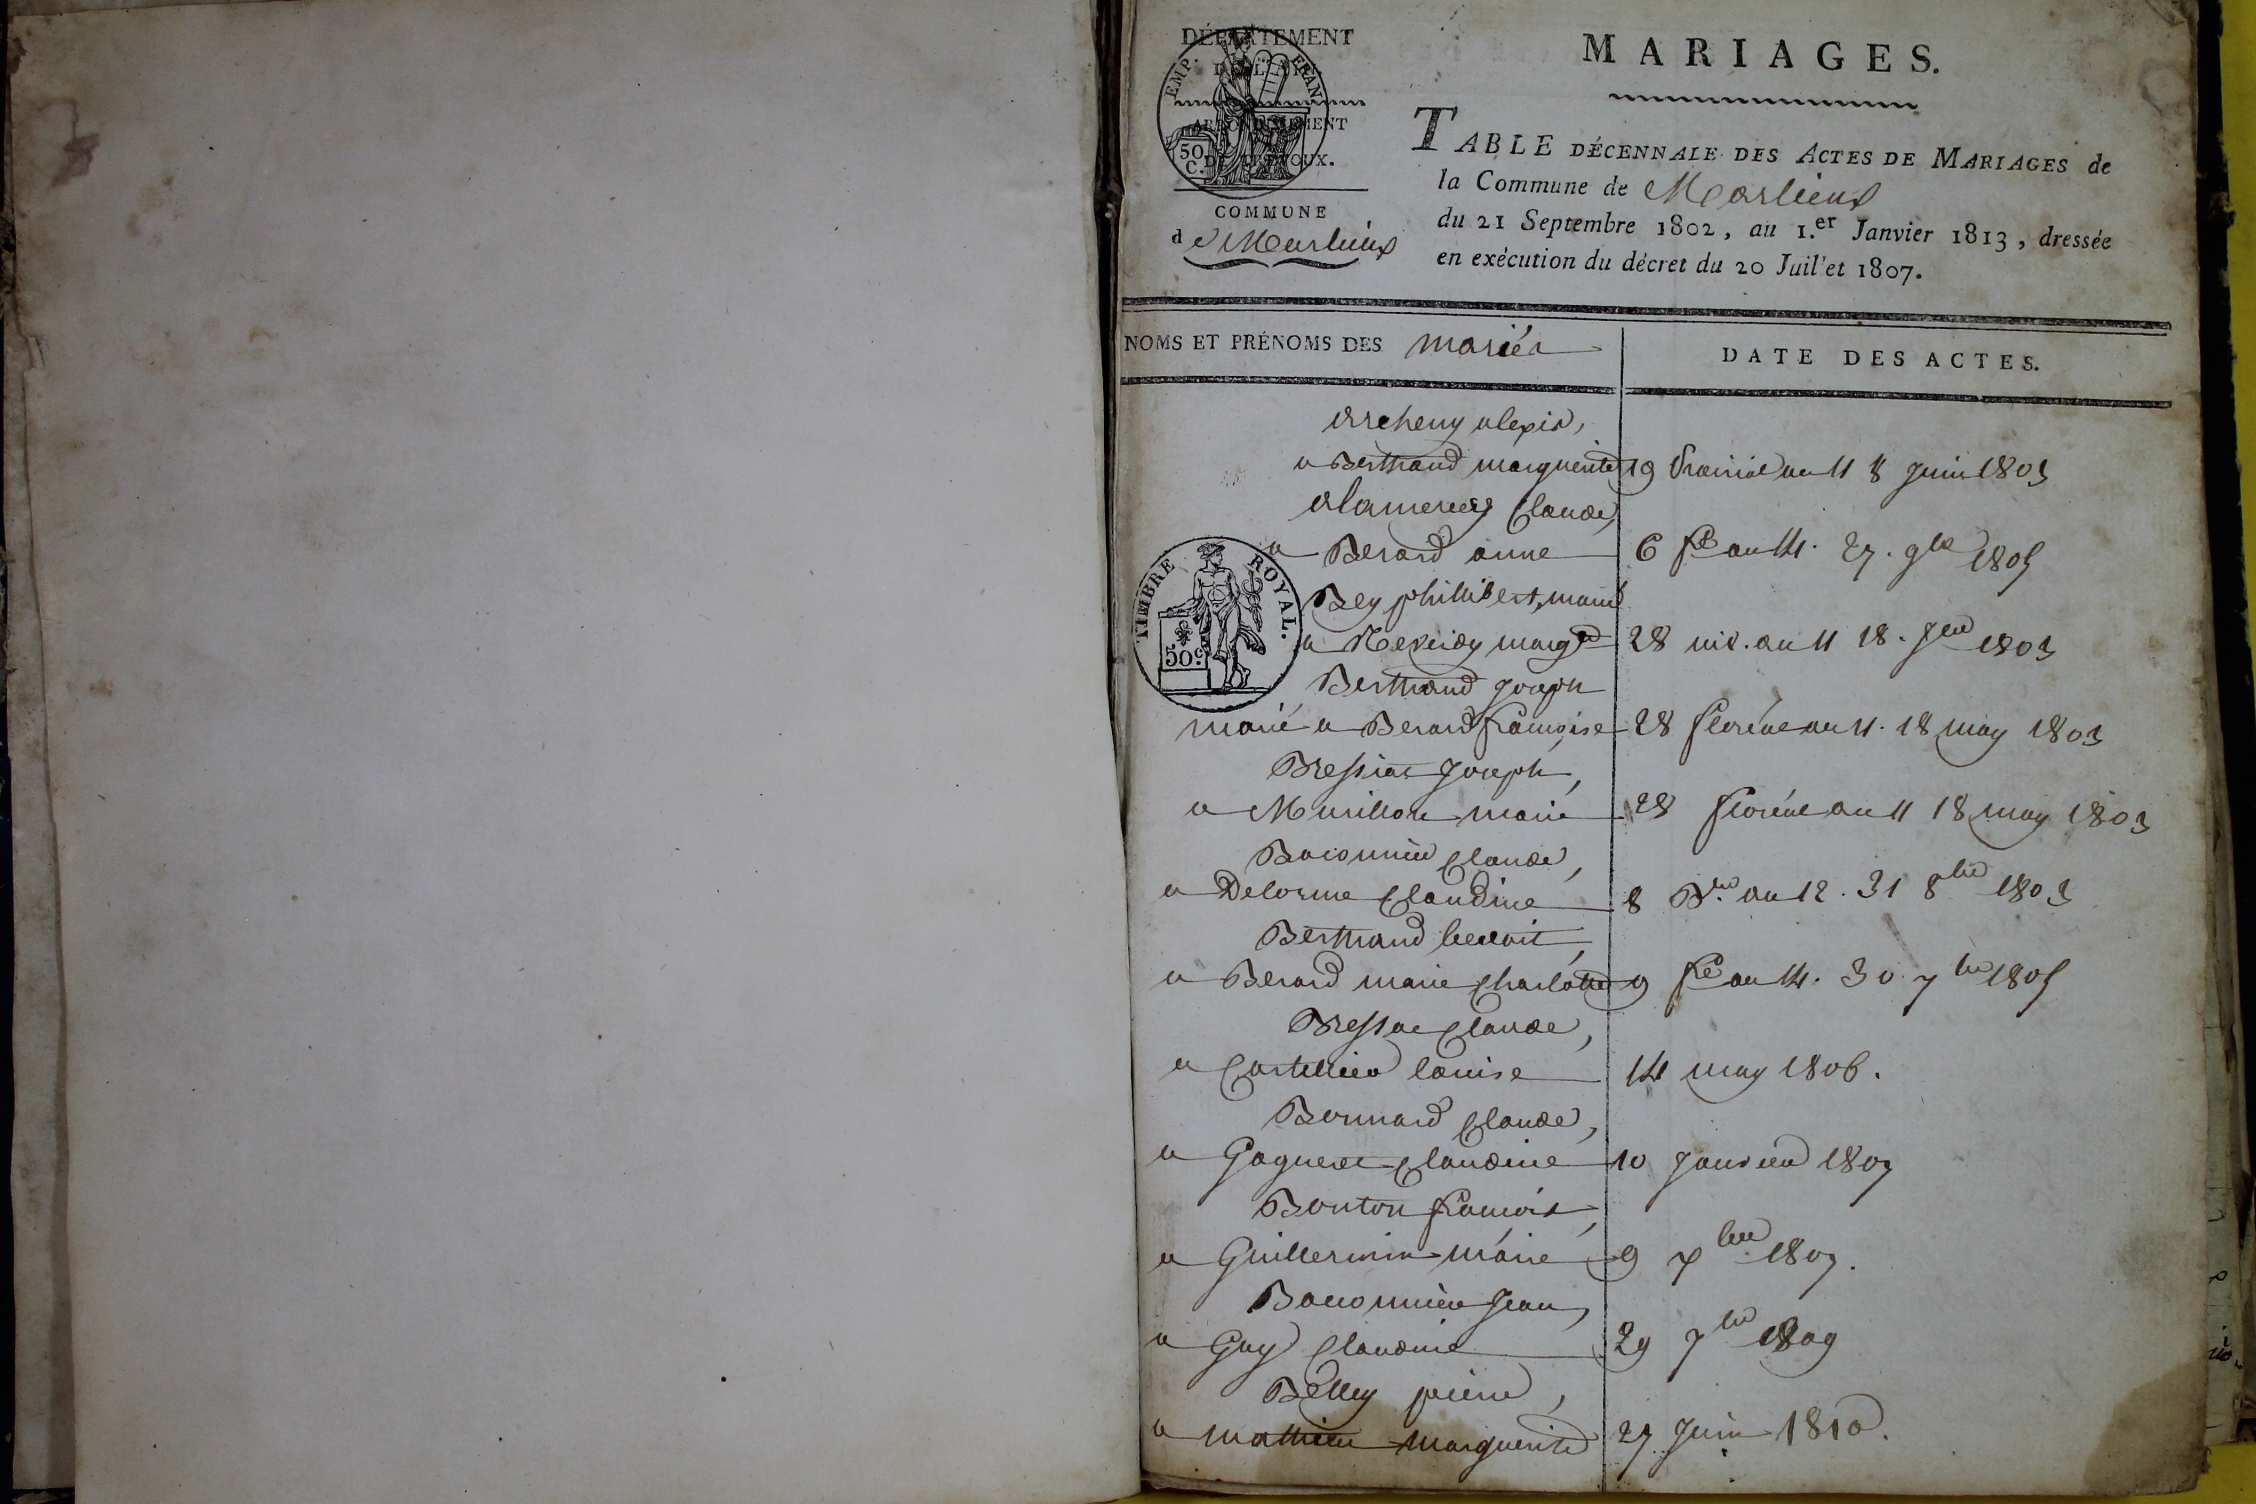 DÉPARTEMENT
DE L'AIN.
EMP. FRAN.
ARRONDISSEMENT
50
C.
DE TRÉVOUX.
COMMUNE
de Marlieux
MARIAGES.
TABLE DÉCENNALE DES ACTES DE MARIAGES de
la Commune de Marlieux
du 21 Septembre 1802, au 1.er Janvier 1813, dressée
en exécution du décret du 20 Juil'et 1807.
NOMS ET PRÉNOMS DES mariés
DATE DES ACTES.
alexis,
a Bertrand marguerite 19 Prairial an 11 8 Juin 1803
Claude,
a Berard anne 6 fre an 14. 27. 9bre 1805
Bey phillibert, marié
a margte 28 niv. an 11 18. Jer 1803
TIMBRE ROYAL.
50c
Bertrand Joseph
marié a Berard françoise 28 floréal an 11. 18 may 1803
Bressiat Joseph,
a Murillon marie 28 floréal an 11 18 may 1803
Baconnier Claude,
a Delorme Claudine 8 Bre. an 12. 31 8bre 1803
Bertrand benoit,
a Berard marie Charlotte 9 fre an 14. 30 7bre 1805
Bressat Claude,
a louise 14 may 1806.
Bernard Claude,
a Gagneret Claudine 10 Janvier 1807
Bouton françois,
a Guillermin marie 9 xbre 1807.
Baconnier Jean,
a Guy Claudine 29 7bre 1809
Belley pierre,
a mathieu marguerite 27 Juin 1810.